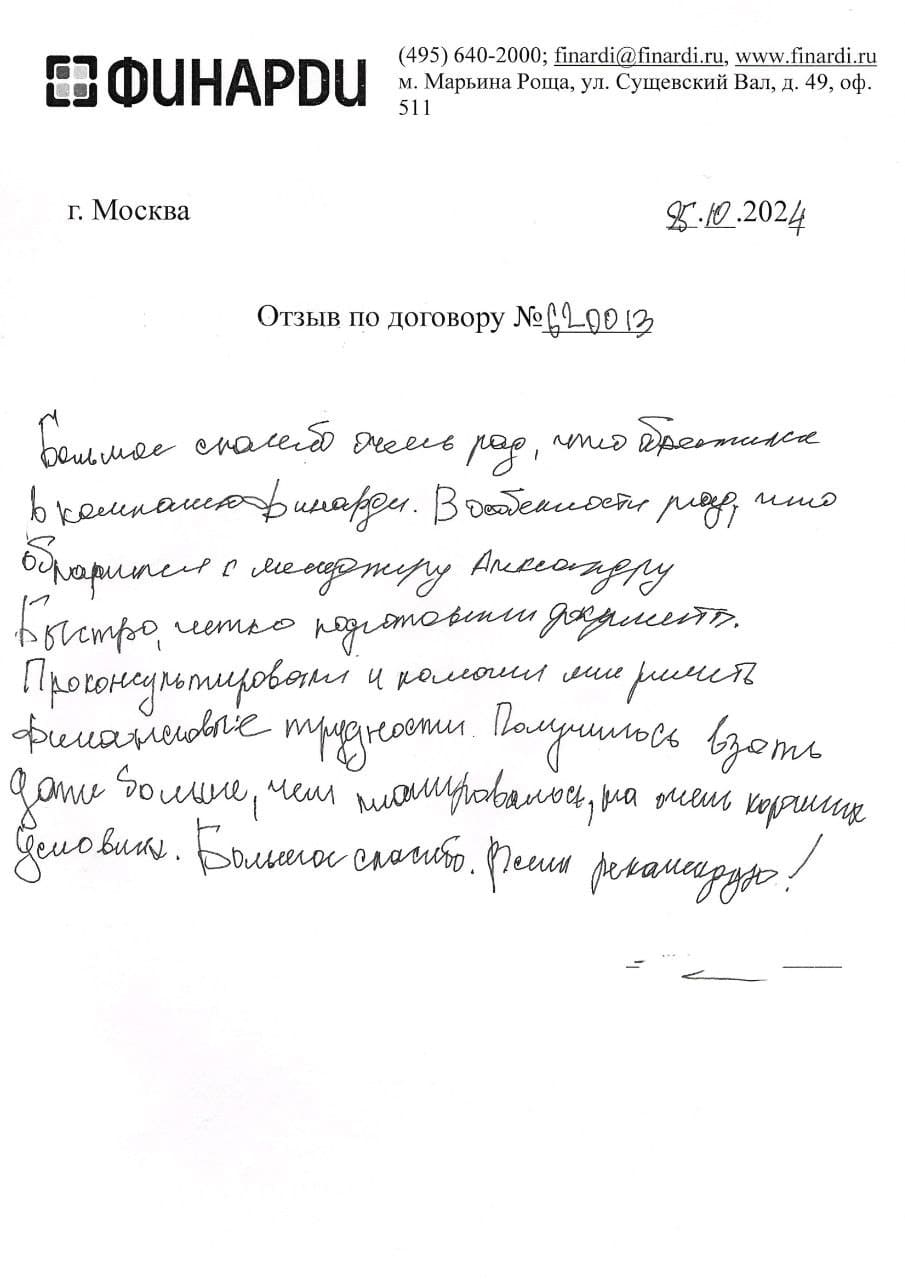 ФИНАРДИ
(495) 640-2000; finardi@finardi.ru, www.finardi.ru
м. Марьина Роща, ул. Сущевский Вал, д. 49, оф.
511
г. Москва
25.10.2024
Отзыв по договору №620013
Большое спасибо очень рад, что обратился
в компанию Финарди. В особенности рад, что
обратился к менеджеру Александру
Быстро, четко подготовили документы.
Проконсультировали и помогли мне решить
финансовые трудности. Получилось взять
даже больше, чем планировалось, на очень хороших
условиях. Большое спасибо. Всем рекомендую!